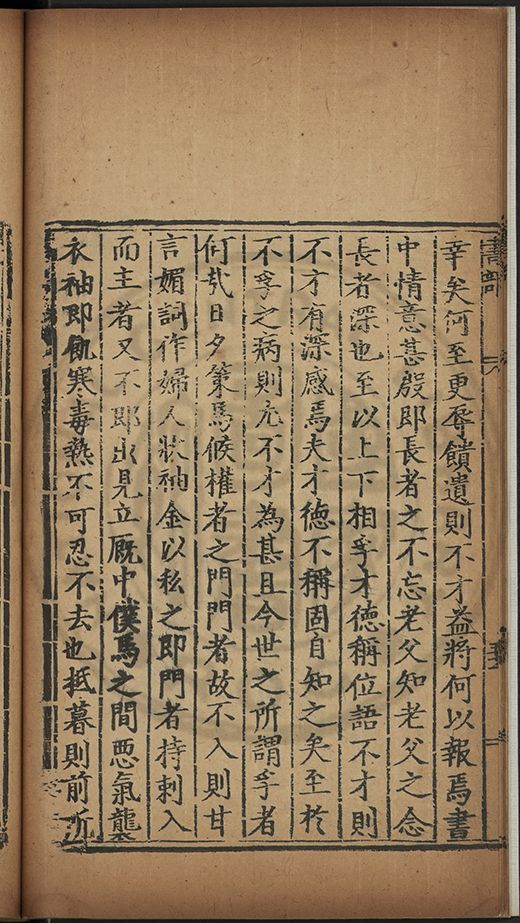 幸矣何至更辱饋遺則不才益將何以報焉書
中情意甚殷即長者之不忘老父知老父之念
長者深也至以上下相孚才德稱位語不才則
不才有深感焉夫才德不稱固自知之矣至扵
不孚之病則尤不才為甚且今世之所謂孚者
何哉日夕策馬候權者之門門者故不入則甘
言媚詞作婦人狀袖金以私之即門者持刺入
而主者又不即出見立厩中僕馬之間悪氣襲
衣袖即飢寒毒熱不可忍不去也抵暮則前所